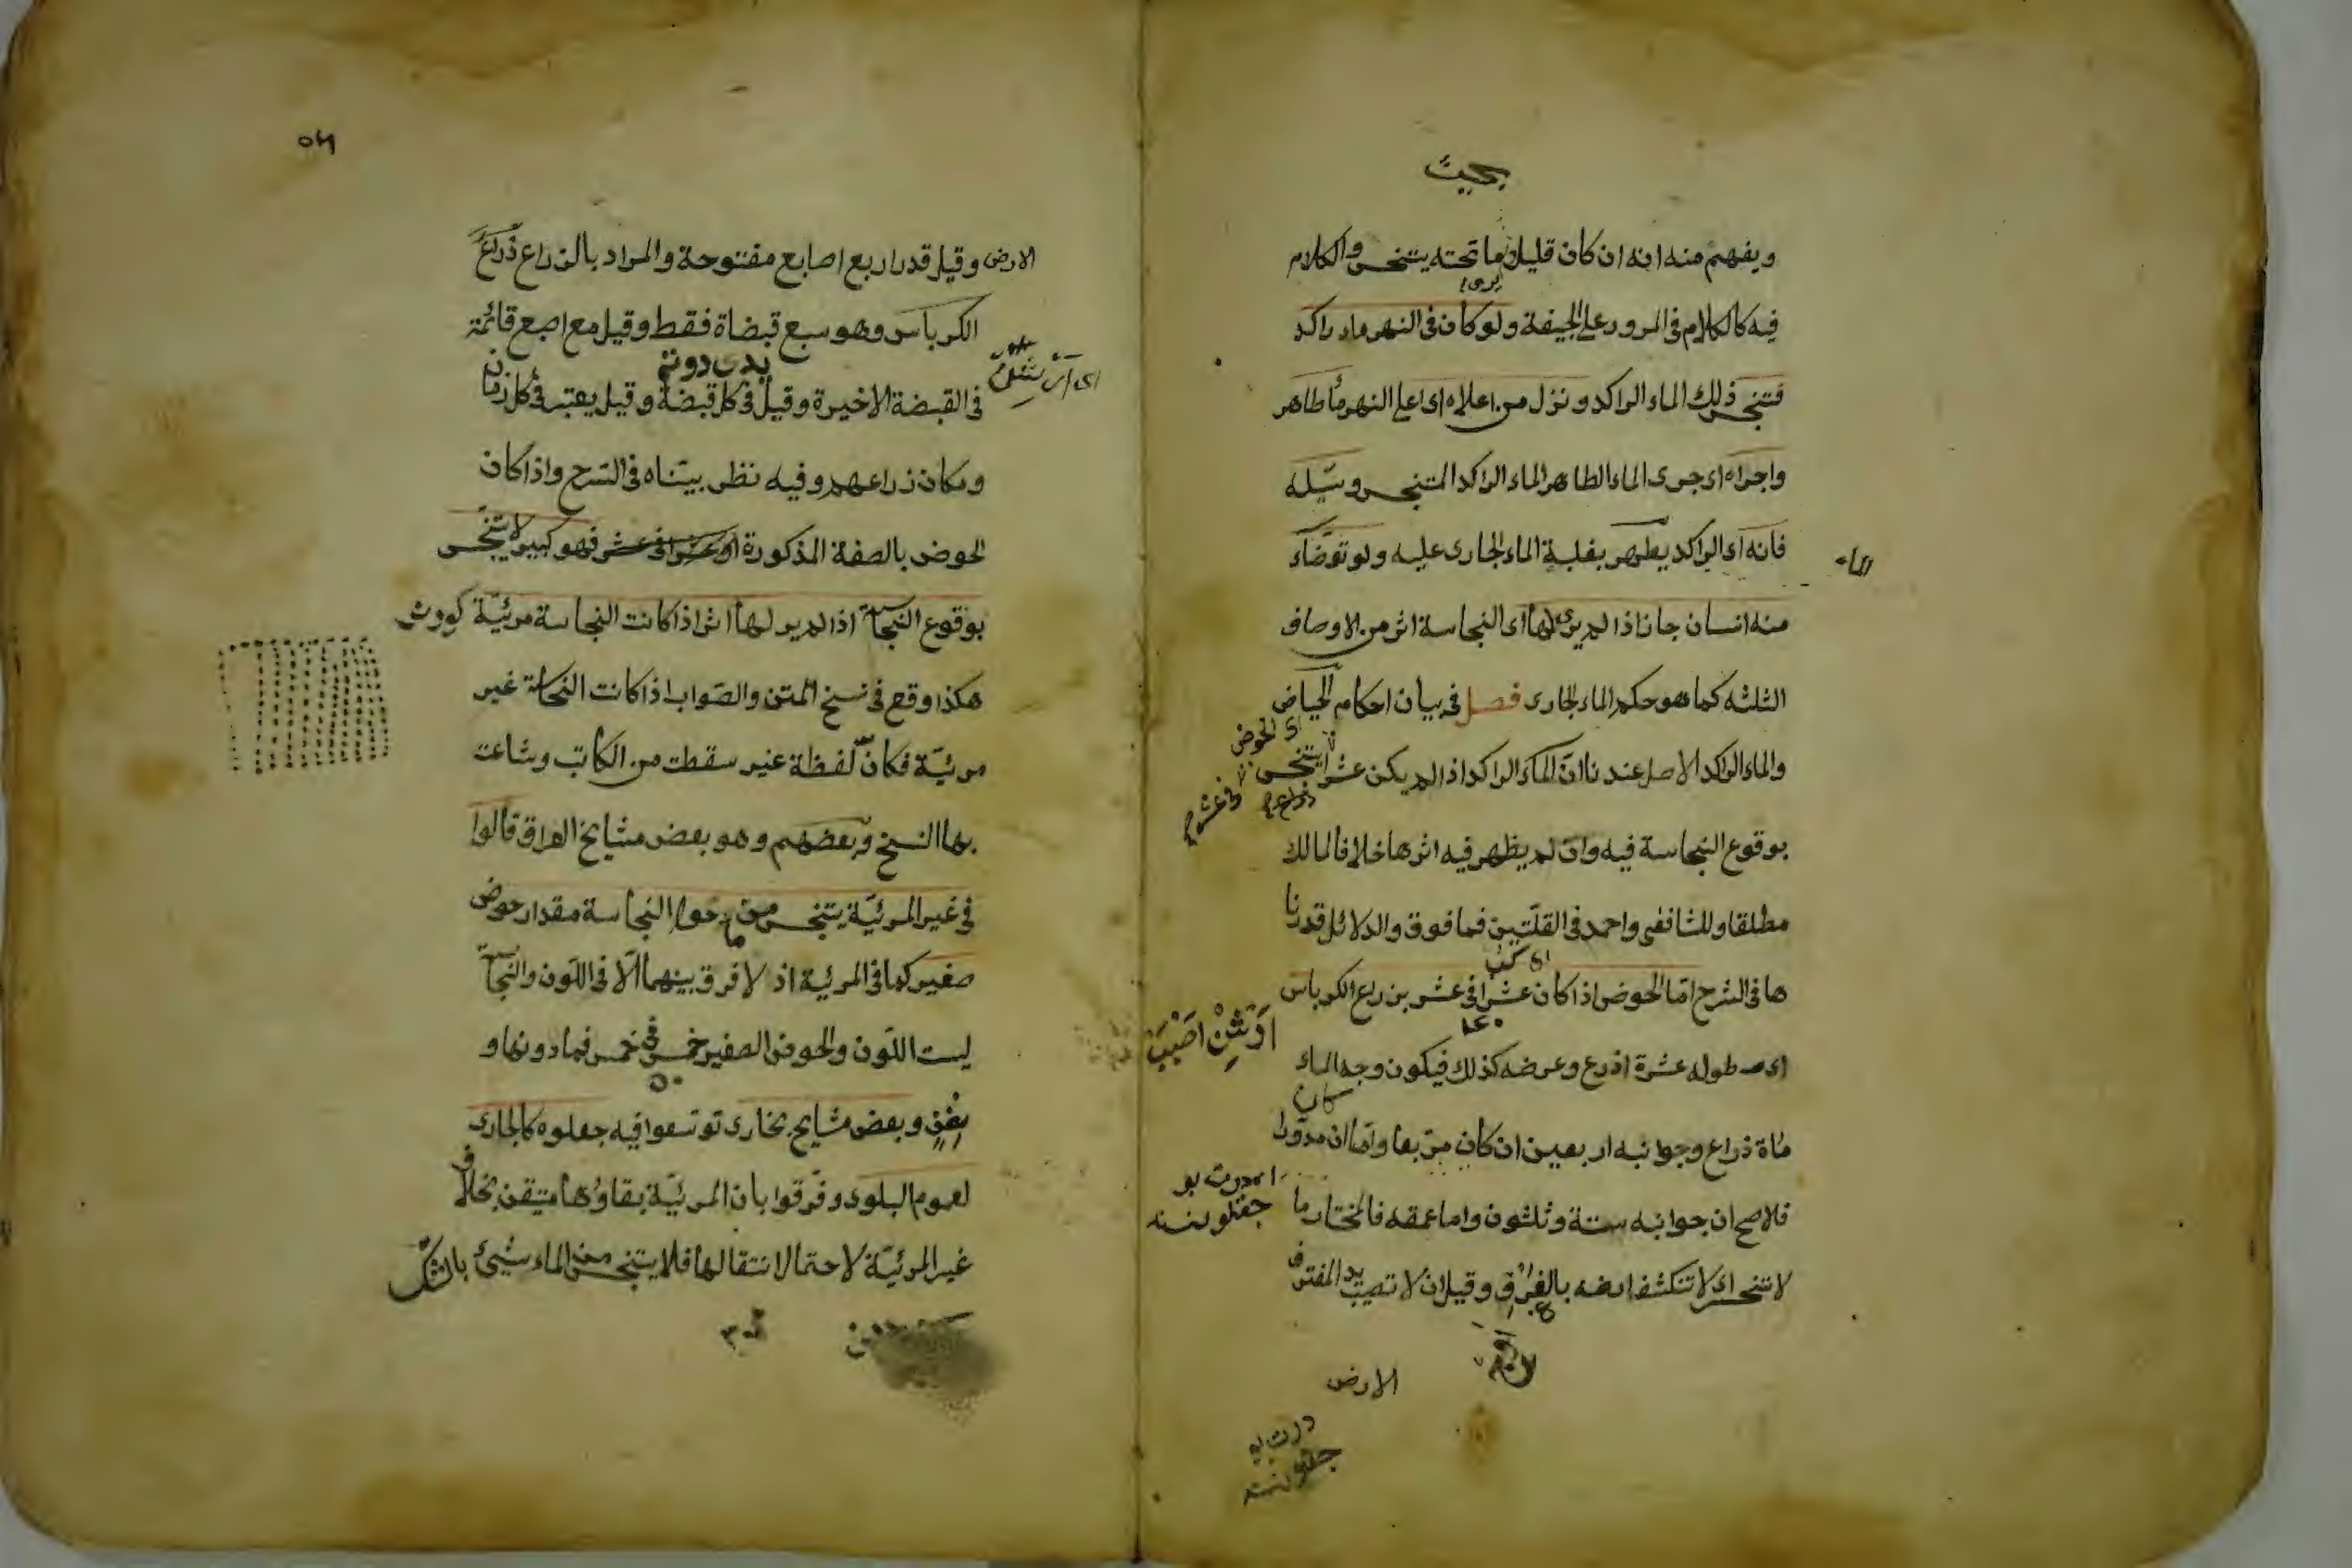 بحيث
ويفهم منه انه ان كان قليلا وما تحته يتنجس والكلام
فيه كالكلام فى المرور على الجيفة ولو كان فى النهر ماء راكد
فتنجس ذلك الماء الراكد ونزل من اعلاه اى اعلى النهر ماء طاهر
واجراه اى جرى الماء الطاهر الماء الراكد المتنجس وسيّله
فانه اى الراكد يطهر بغلبة الماء الجارى عليه ولو توضّاء
الماء
منه انسان جاز اذا لم يرى لها اى النجاسة اثر من الاوصاف
الثلثه كما هو حكم الماء الجارى فصل فى بيان احكام الحياض
اى الحوض
والماء الراكد الاصل عندنا انّ الماء الراكد اذا لم يكن عشرا يتنجس
فى عشر
بوقوع النجاسة فيه وان لم يظهر فيه اثرها خلافا لمالك
مطلقا وللشافعى واحمد فى القلّتين فما فوق والدلائل قدرنا
ها فى الشرح امّا الحوض اذا كان عشرا فى عشر بذراع الكرباس
اى طوله عشرة اذرع وعرضه كذلك فيكون وجه الماء
كان
ماة ذراع وجوانبه اربعين ان كان مربعا وامّا ان مدوّرا
فلاصح ان جوانبه ستة وثلثون واما عمقه فالمختار ما
لا تنحسر اى لا تنكشف ارضه بالغرق وقيل ان لا تصيب يد المغترف
الارض
٥٦
الارض وقيل قدر اربع اصابع مفتوحة والمراد بالذراع ذراع
الكرباس وهو سبع قبضاة فقط وقيل مع اصبع قائمة
فى القبضة الاخيرة وقيل فى كل قبضة وقيل يعتبر فى كل زمان
ومكان ذراعهم وفيه نظر بيّناه فى الشرح واذا كان
الحوض بالصفة المذكورة او عشرا فى عشر فهو كبير لا يتنجّس
بوقوع النجاسة اذا لم ير لها اثر اذا كانت النجاسة مرئيّة
هكذا وقع فى نسخ المتن والصّواب اذا كانت النجاسة غير
مرئيّة فكانّ لفظة غير سقطت من الكاتب وشاعت
بها النسخ وبعضهم وهو بعض مشايخ العراق قالوا
فى غير المرئيّة يتنجس من حول النجاسة مقدار حوض
صغير كما فى المرئية اذ لا فرق بينهما الّا فى اللّون والنجاسة
ليست اللّون والحوض الصغير خمس فى خمس فما دونها و
بعض وبعض مشايخ بخارى توسعوا فيه جعلوه كالجارى
لعموم البلوى وفرّقوا بان المرئيّة بقاؤها متيقن بخلاف
غير المرئيّة لاحتمال انتقالها فلا يتنجس من الماء شيئ بالشكّ